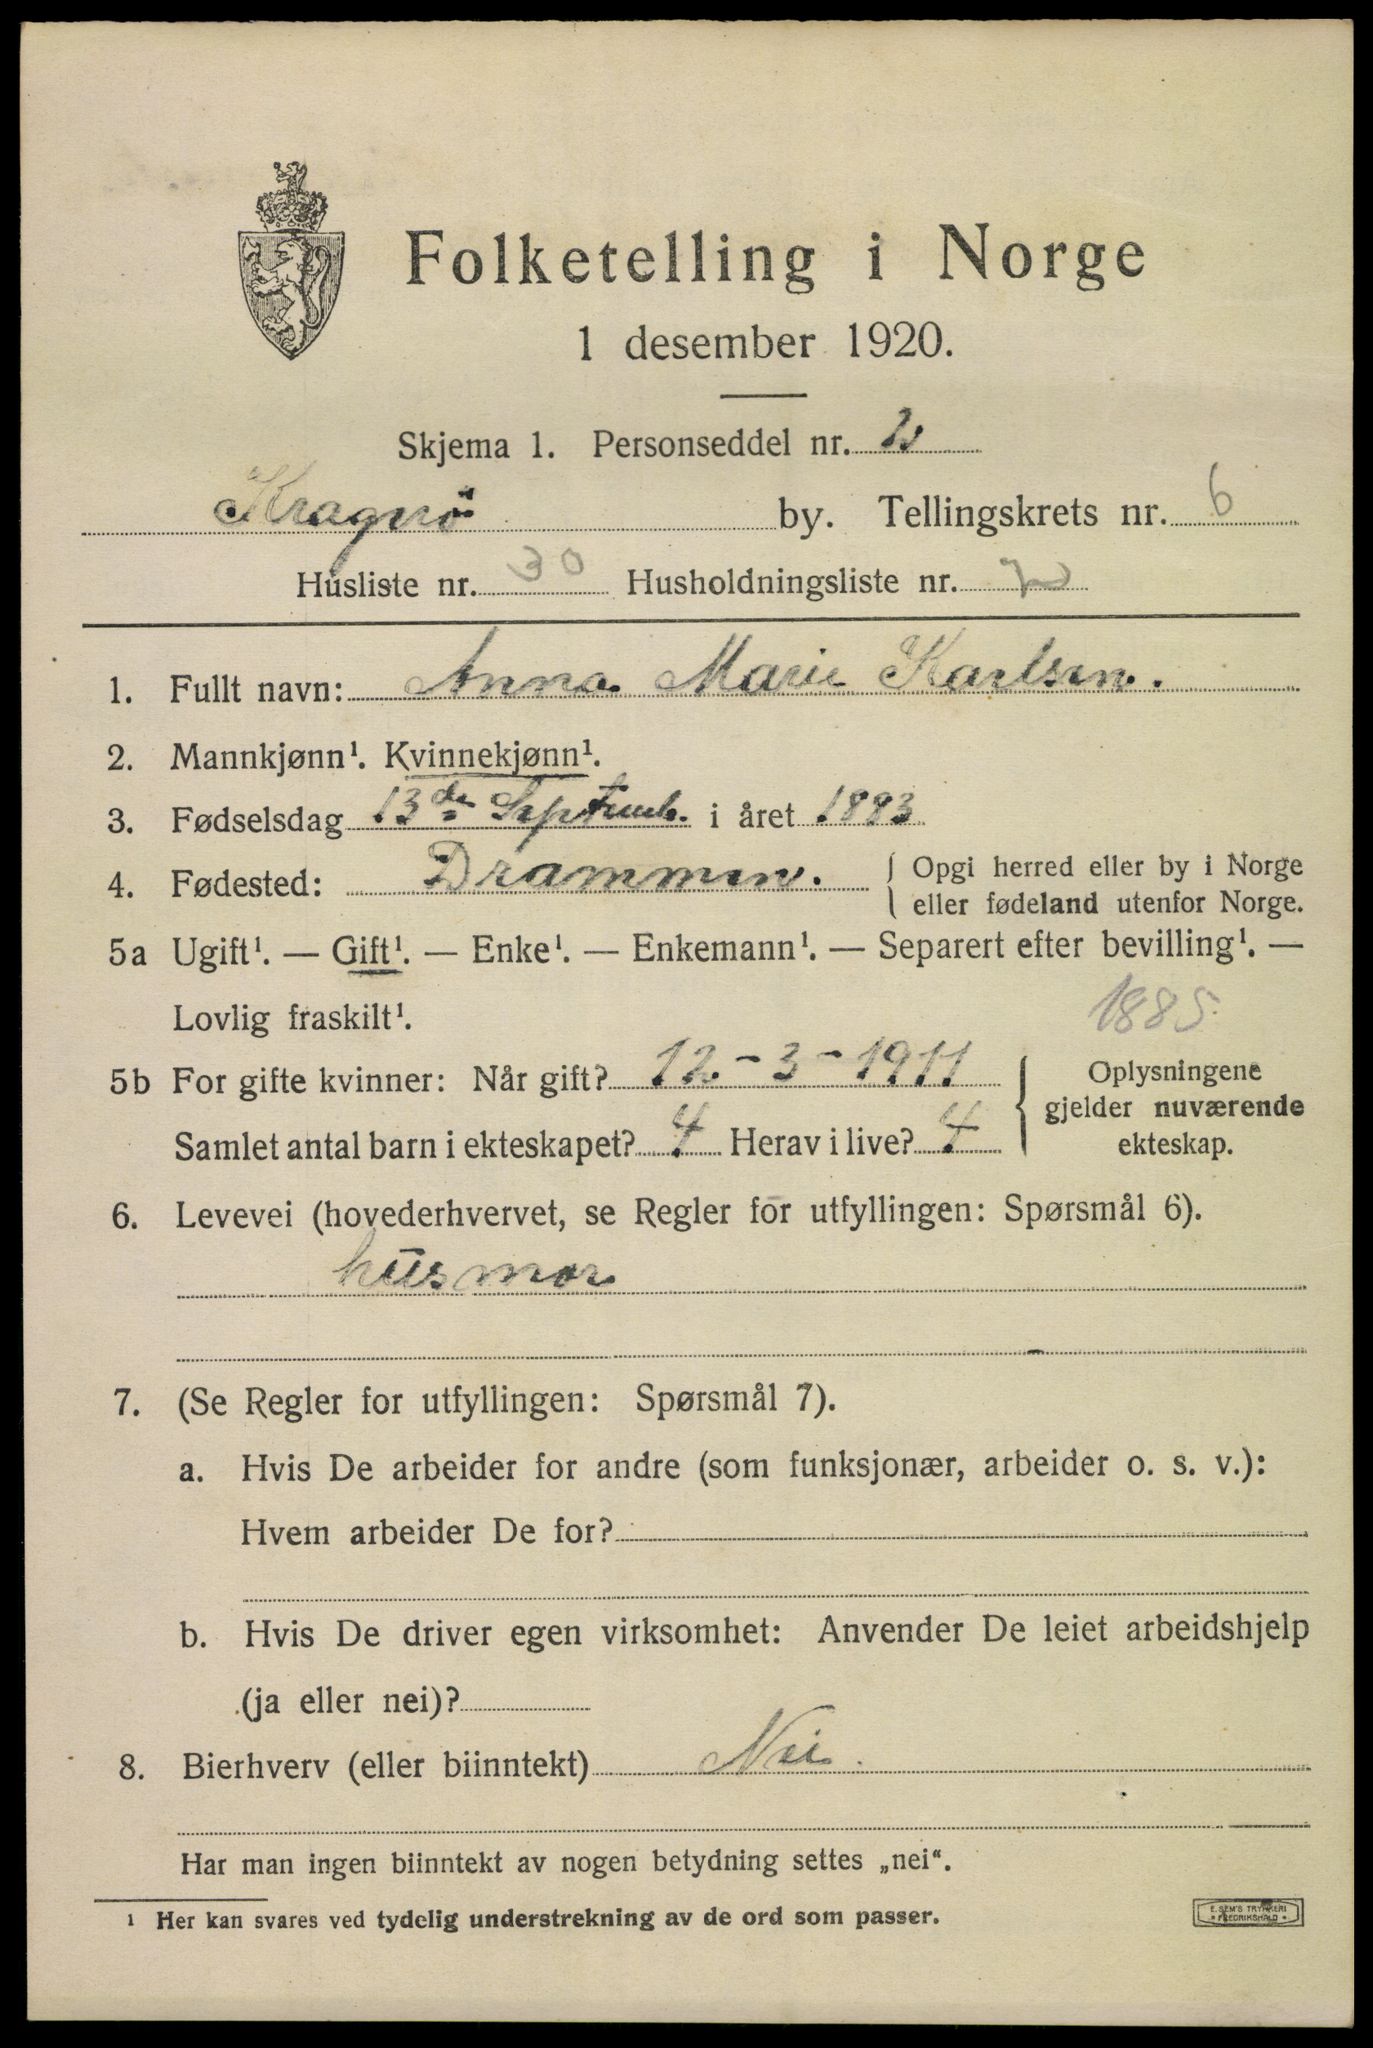 Folketelling i Norge
1 desember 1920.
Skjema 1. Personseddel nr. 2
Kragerø by. Tellingskrets nr. 6
Husliste nr. 30 Husholdningsliste nr. 2
1. Fullt navn: Anna Marie Karlsen.
2. Mannkjønn¹. Kvinnekjønn¹.
3. Fødselsdag 13de Septemb. i året 1883
4. Fødested: Drammen. { Opgi herred eller by i Norge
eller fødeland utenfor Norge.
5a Ugift¹. — Gift¹. — Enke¹. — Enkemann¹. — Separert efter bevilling¹. —
Lovlig fraskilt¹. 1885.
5b For gifte kvinner: Når gift? 12-3-1911
Samlet antal barn i ekteskapet? 4 Herav i live? 4
{ Oplysningene
gjelder nuværende
ekteskap.
6. Levevei (hovederhvervet, se Regler for utfyllingen: Spørsmål 6).
husmor
7. (Se Regler for utfyllingen: Spørsmål 7).
a. Hvis De arbeider for andre (som funksjonær, arbeider o. s. v.):
Hvem arbeider De for?
b. Hvis De driver egen virksomhet: Anvender De leiet arbeidshjelp
(ja eller nei)?
8. Bierhverv (eller biinntekt) Nei.
Har man ingen biinntekt av nogen betydning settes „nei“.
¹ Her kan svares ved tydelig understrekning av de ord som passer.
E. SEM'S TRYKKERI
FREDRIKSHALD